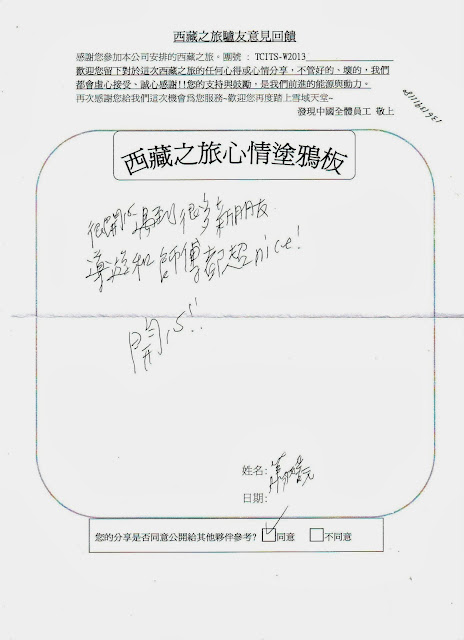 西藏之旅驢友意見回饋
感謝您參加本公司安排的西藏之旅。團號：TCITS-W2013
歡迎您留下對於這次西藏之旅的任何心得或心情分享，不管好的、壞的，我們
都會虛心接受、誠心感謝!!您的支持與鼓勵，是我們前進的能源與動力。
再次感謝您給我們這次機會爲您服務~歡迎您再度踏上雪域天堂~
發現中國全體員工 敬上
西藏之旅心情塗鴉板
很開心 遇到很多新朋友
導遊和師傅都超nice!
開心!!
姓名:
日期:
您的分享是否同意公開給其他夥伴參考? 同意 不同意